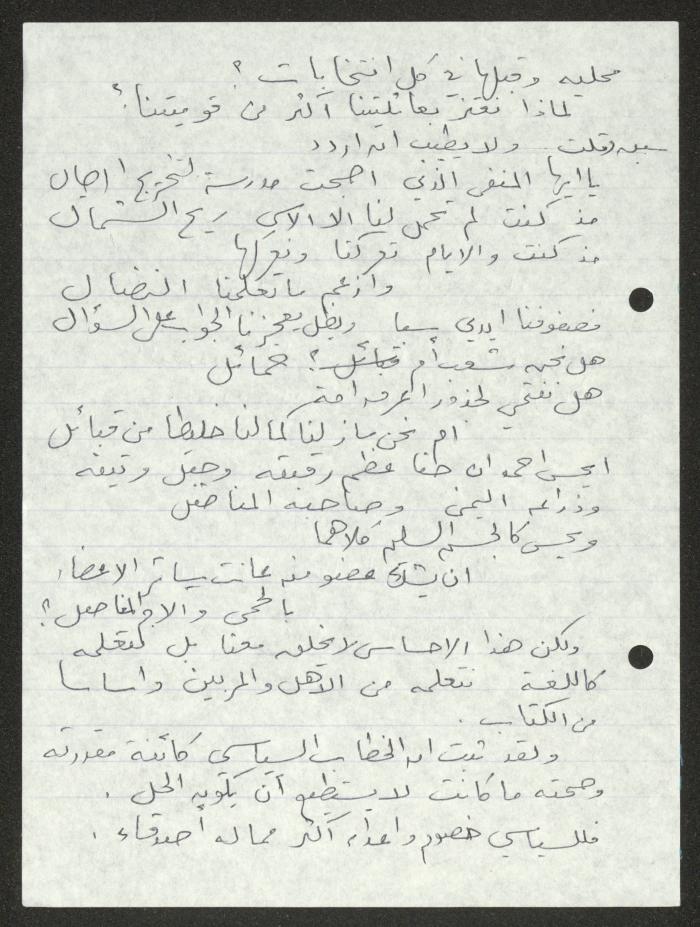 محليه وقبلها في كل انتخابات ؟
لماذا نعتز بعائلتنا أكثر من قوميتنا ؟
سبق وقلت ولا يطيب ان اردد
يا ايها المنفى الذي اصبحت مدرسة لتخريج الرجال
مذ كنت لم تحمل لنا الا الاسى ريح الشمال
مذ كنت والايام تعركنا ونعركها
وأزعم ما تعلمنا النضال
فصفوفنا ايدي سبا ويظل يعجزنا الجواب على السؤال
هل نحن شعب أم قبائل ؟ حمائل
هل ننتمي لجذور اعرق امة
ام نحن مازلنا كما كنا خليطا من قبائل
ايحس احمد ان حقا عظم رفيقه وجيل
وذراعه اليمنى وصاحبه المناضل
ويحس كالجسم السليم كلاهما
ان يشتكي عضو منه عانت سائر الاعضاء
بالحمى والام المفاصل ؟
ولكن هذا الاحساس لا يخلق معنا بل نتعلمه
كاللغة نتعلمه من الأهل والمربين واساسا
من الكتاب .
ولقد ثبت ان الخطاب السياسي كائنة مقدرته
وصحته ما كانت لا يستطيع أن يكون الحل .
فللسياسي خصوم واعداء أكثر مما له أصدقاء .